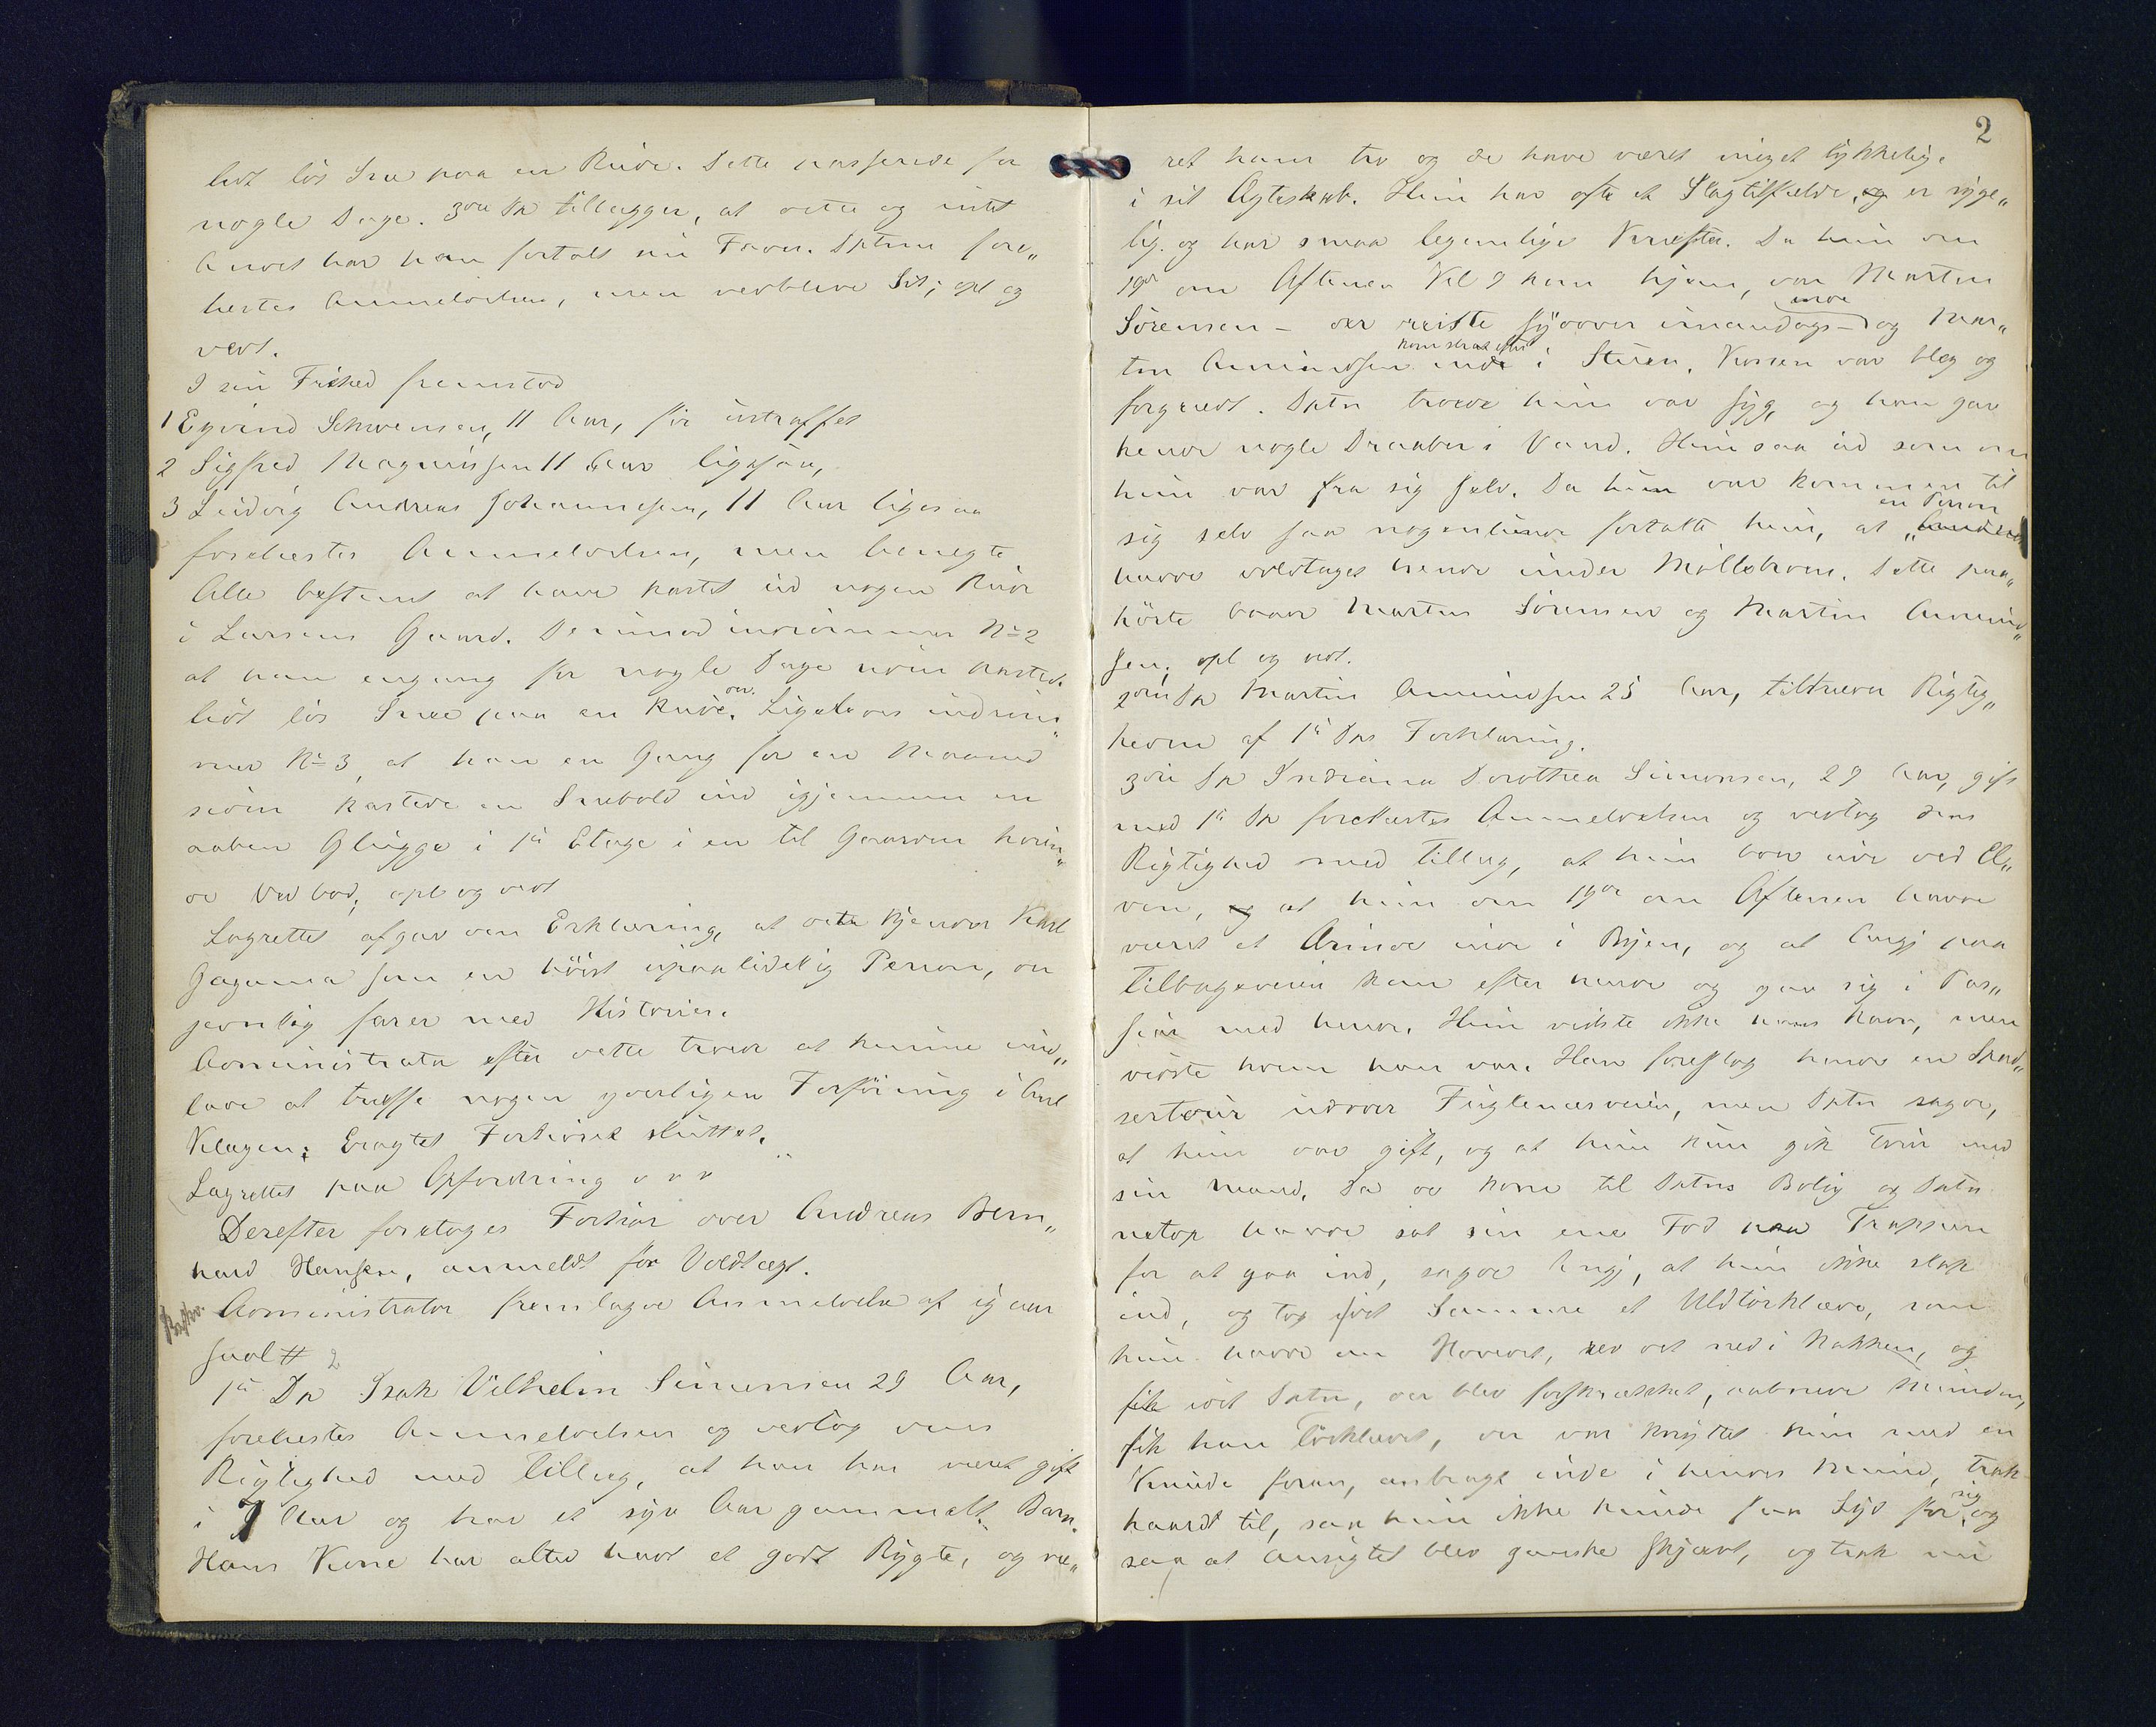 lidt løs Sne paa en Rude. Dette passerede for
nogle Dage. 3die Dp tillægger, at dette og intet
Andet har han fortalt sin Fader. Dptne fore„
hestes Anmeldelsen, men vedbleve Sit; opl og
vedt.
I sin Frihed fremstod
1 Eyvind Schwensen, 11 Aar, før ustraffet
2 Sigfred Magnussen 11 Aar ligesaa,
3 Ludvig Andreas Johannesen, 11 Aar ligesaa
forehestes Anmeldelsen, men benegte
Alle bestemt at have kastet ud nogen Rude
i Larsens Gaard. Derimod indrømmer No 2
at han engang for nogle Dage siden kastede
lidt løs Snee paa en Rude der. Ligeledes indrøm„
mer No 3, at han en Gang for en Maaned
siden kastede en Snebold ind igjennem en
aaben Glugge i 1ste Etage i en til Gaarden høren„
de Vedbod; opl og vedt
Lagrettet afgav den Erklæring, at det kjender Karl
Gagama som en høist upaalidelig Person, der
jevnlig farer med Historier.
Administrator efter dette troede at kunne und„
lade at træffe nogen yderligere Forføining i Anl
Klagen. Eragtet Forhøret sluttet.
Lagrettet paa Opfordring v v v
Derefter foretoges Forhør over Andreas Bern„
hard Hansen, anmeldt for Voldtægt.
Administrator fremlagde Anmeldelse af igaar
saal # 2
1ste Dp Isak Vilhelm Simonsen 29 Aar,
forehestes Anmeldelsen og vedtog dens
Rigtighed med Tillæg, at han har været gift
i 7 Aar og har et syv Aar gammelt Barn.
Hans Kone har altid havt et godt Rygte, og væ„
2
ret ham tro og de have været meget lykkelige
i sit Ægteskab. Hun har ofte et Slagtilfælde, og er syge„
lig. og har smaa legemlige Kræfter. Da hun den
19de om Aftenen Kl 9 kom hjem, var Martin
Sørensen – der reiste sydover imandags – inde og Mar„
tin Amundsen kom strax efter inde i Stuen. Konen var bleg og
forgrædt. Dptn troede hun var syg, og han gav
hende nogle Draaber i Vand. Hun saa ud som om
hun var fra sig selv. Da hun var kommen til
sig selv saa nogenlunde fortalte hun, at „en Person
havde voldtaget hende under Møllebroen. Dette paa„
hørte baade Martin Sørensen og Martin Amund„
sen; opl og vedt.
2den Dp Martin Amundsen 25 Aar, tiltræder Rigtig„
heden af 1ste Dps Forklaring.
3die Dp Indiana Dorothea Simonsen, 29 Aar, gift
med 1ste Dp forehestes Anmeldelsen og vedtog dens
Rigtighed med Tillæg, at hun bor ude ved El„
ven, og at hun den 19de om Aftenen havde
været et Ærinde inde i Byen, og at Angj paa
Tilbageveien kom efter hende og gav sig i Pas„
siar med hende. Hun vidste ikke hans Navn, men
vidste hvem han var. Han foreslog hende en Spad„
sertour udover Fuglenæsveien, men Dptn sagde,
at hun var gift, og at hun kun gik Tour med
sin Mand. Da de kom til Dptns Bolig og Dptn
netop havde sat sin ene Fod paa Trappen
for at gaa ind, sagde Angj, at hun ikke slap
ind, og tog idet Samme et Uldtørklæde, som
hun havde om Hovedet, rev det ned i Nakken, og
fik idet Dptn, der blev forskrækket, aabnede Munden,
fik han Tørklædet, der var knyttet kun med en
Knude foran, anbragt inde i hendes Mund, trak
haardt til, saa hun ikke kunde faa Lyd fra sig og
saa at Ansigtet blev ganske skjævt, og trak nu